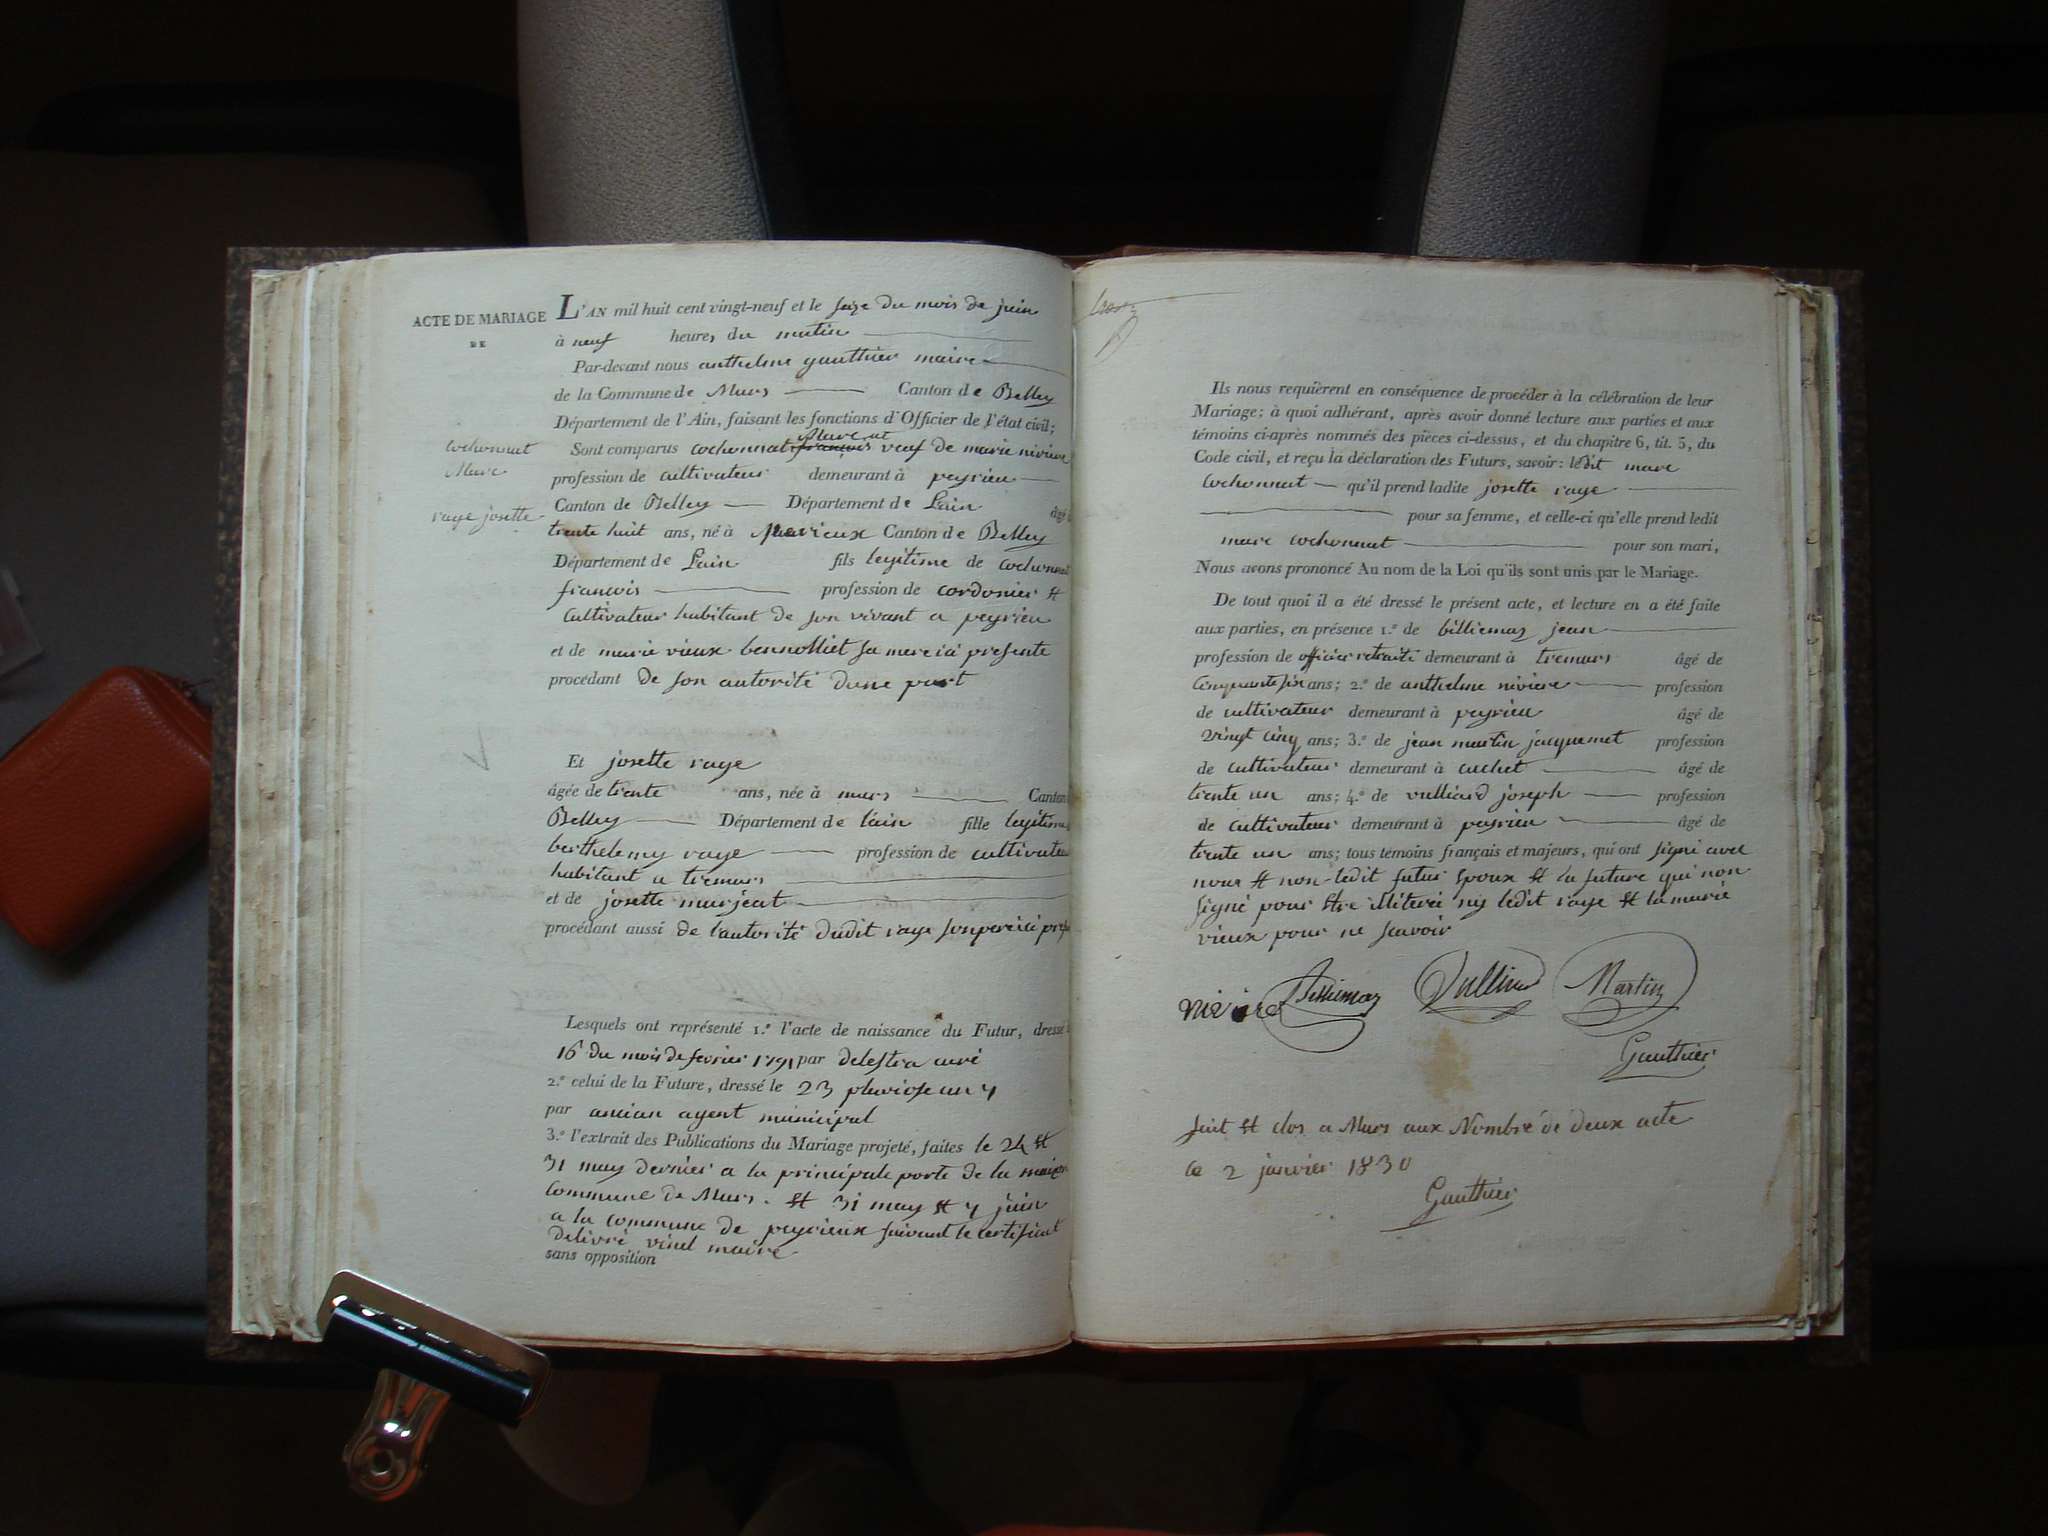 ACTE DE MARIAGE
DE
L'AN mil huit cent vingt-neuf et le seize du mois de juin
à neuf heures du matin
Par-devant nous anthelme gauthier maire
de la Commune de Murs Canton de Belley
Département de l'Ain, faisant les fonctions d'Officier de l'état civil;
cochonnat
Marc
Sont comparus cochonnat françois Marc veuf de marie niviere
profession de cultivateur demeurant à peyrieu
raye josette
Canton de Belley Département de Lain âgé
trente huit ans, né à Canton de Belley
Département de Lain fils legitime de cochonnat
francois profession de cordonier et
cultivateur habitant de son vivant a peyrieu
et de marie vieux bennolliet sa mere ici presente
procédant de son autorité dune part
Et josette raye
âgée de trente ans, née à murs Canton
Belley Département de lain fille legitime
berthelemy raye profession de cultivateur
habitant a tremurs
et de josette murjeat
procédant aussi de l'autorité dudit raye son pere ici
Lesquels ont représenté 1.º l'acte de naissance du Futur, dressé
16 du mois de fevrier 1791 par delestra curé
2.º celui de la Future, dressé le 23 pluviose an 4
par ancian agent municipal
3.º l'extrait des Publications du Mariage projeté, faites le 24 et
31 may dernier a la principale porte de la maison
commune de Murs. et 31 may et 7 juin
a la commune de peyrieux suivant le certificat
delivré vinel maire
sans opposition
Ils nous requièrent en conséquence de procéder à la célébration de leur
Mariage; à quoi adhérant, après avoir donné lecture aux parties et aux
témoins ci-après nommés des pièces ci-dessus, et du chapitre 6, tit. 5, du
Code civil, et reçu la déclaration des Futurs, savoir: ledit marc
cochonnat qu'il prend ladite josette raye
pour sa femme, et celle-ci qu'elle prend ledit
marc cochonnat pour son mari,
Nous avons prononcé Au nom de la Loi qu'ils sont unis par le Mariage.
De tout quoi il a été dressé le présent acte, et lecture en a été faite
aux parties, en présence 1.º de billiemaz jean
profession de officier retraité demeurant à tremurs âgé de
cinquante six ans; 2.º de anthelme niviere profession
de cultivateur demeurant à peyrieu âgé de
vingt cinq ans; 3.º de jean martin jacquemet profession
de cultivateur demeurant à cuchet âgé de
trente un ans; 4.º de vulliard joseph profession
de cultivateur demeurant à peyrieu âgé de
trente un ans; tous témoins français et majeurs, qui ont signé avec
nous et non ledit futur epoux et la future qui non
signé pour etre illiteré ny ledit raye et la marie
vieux pour ne scavoir
Niviere Billiemaz Vulliard Martin
Gauthier
fait et clos a Murs aux Nombre de deux acte
le 2 janvier 1830
Gauthier